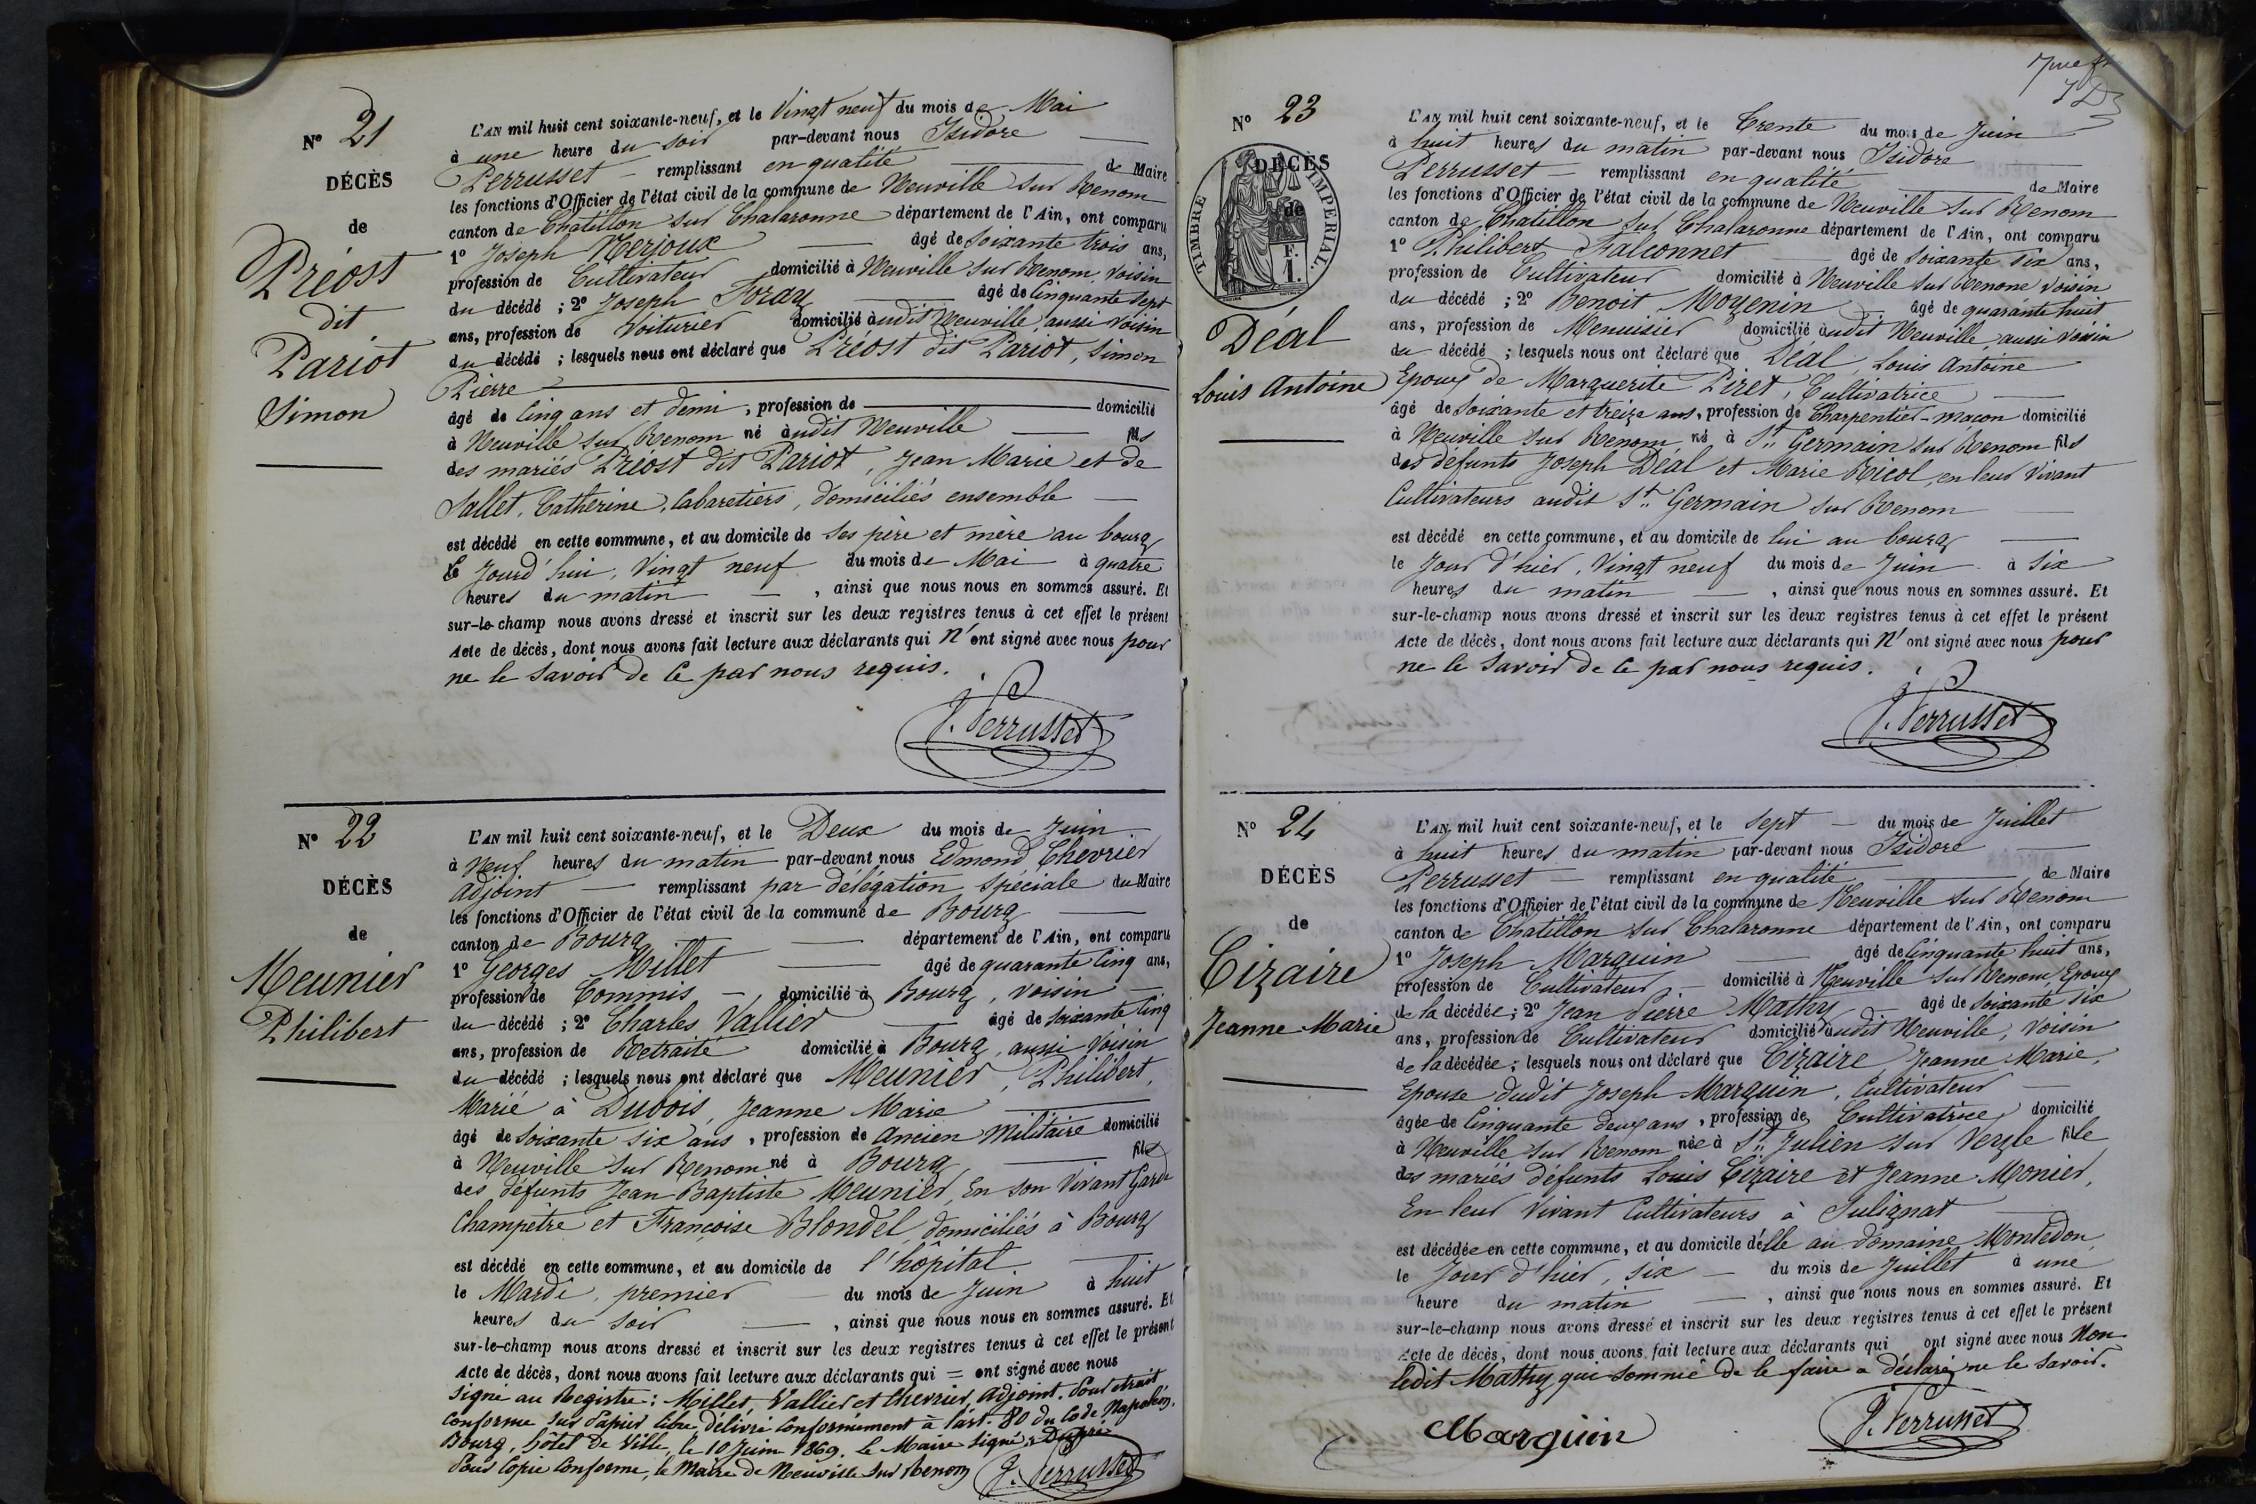 N° 21
DÉCÈS
de
Préost
dit
Pariot
Simon
L'AN mil huit cent soixante-neuf, et le Vingt neuf du mois de Mai
à une heure du soir par-devant nous Isidore
Perrusset remplissant en qualité de Maire
les fonctions d'Officier de l'état civil de la commune de Neuville sur Renom
canton de Chatillon sur Chalaronne département de l'Ain, ont comparu
1° Joseph Merjoux âgé de soixante trois ans,
profession de Cultivateur domicilié à Neuville sur Renom, voisin
du décédé ; 2° Joseph Foray âgé de Cinquante sept
ans, profession de Voiturier domicilié audit Neuville, aussi voisin
du décédé ; lesquels nous ont déclaré que Préost dit Pariot, Simon
Pierre
âgé de Cinq ans et demi, profession de domicilié
à Neuville sur Renom né audit Neuville fils
des mariés Préost dit Pariot, Jean Marie et de
Sallet, Catherine, Cabaretiers, domiciliés ensemble
est décédé en cette commune, et au domicile de ses père et mère au bourg
le Jourd'hui, Vingt neuf du mois de Mai à quatre
heures du matin, ainsi que nous nous en sommes assuré. Et
sur-le-champ nous avons dressé et inscrit sur les deux registres tenus à cet effet le présent
Acte de décès, dont nous avons fait lecture aux déclarants qui n'ont signé avec nous pour
ne le savoir de ce par nous requis.
J. Perrusset
N° 22
DÉCÈS
de
Meunier
Philibert
L'AN mil huit cent soixante-neuf, et le Deux du mois de Juin
à Neuf heures du matin par-devant nous Edmond Chevrier
adjoint remplissant par délégation spéciale du Maire
les fonctions d'Officier de l'état civil de la commune de Bourg
canton de Bourg département de l'Ain, ont comparu
1° Georges Millet âgé de quarante Cinq ans,
profession de Commis, domicilié à Bourg, voisin
du décédé ; 2° Charles Vallier âgé de soixante Cinq
ans, profession de Retraité domicilié à Bourg, aussi voisin
du décédé ; lesquels nous ont déclaré que Meunier, Philibert,
Marié à Dubois, Jeanne Marie
âgé de soixante six ans, profession de ancien Militaire domicilié
à Neuville sur Renom né à Bourg fils
des défunts Jean Baptiste Meunier, En son Vivant Garde
Champêtre et Françoise Blondel, domiciliés à Bourg
est décédé en cette commune, et au domicile de l'hôpital
le Mardi, premier du mois de Juin à huit
heures du soir, ainsi que nous nous en sommes assuré. Et
sur-le-champ nous avons dressé et inscrit sur les deux registres tenus à cet effet le présent
Acte de décès, dont nous avons fait lecture aux déclarants qui = ont signé avec nous
signé au Registre : Millet, Vallier et Chevrier, Adjoint. Pour extrait
Conforme sur Papier libre délivré Conformément à l'art. 80 du Code Napoléon.
Bourg, hôtel de Ville, le 10 Juin 1869. Le Maire signé : Dupré
Pour Copie Conforme, le Maire de Neuville sur Renom J. Perrusset
N° 23
DÉCÈS
de
TIMBRE IMPÉRIAL.
F.
1.
Déal
Louis Antoine
L'AN mil huit cent soixante-neuf, et le Trente du mois de Juin
à huit heures du matin par-devant nous Isidore
Perrusset remplissant en qualité de Maire
les fonctions d'Officier de l'état civil de la commune de Neuville sur Renom
canton de Chatillon sur Chalaronne département de l'Ain, ont comparu
1° Philibert Falconnet âgé de soixante six ans,
profession de Cultivateur domicilié à Neuville sur Renone voisin
du décédé ; 2° Benoit Moyenin âgé de quarante huit
ans, profession de Menuisier domicilié audit Neuville, aussi voisin
du décédé ; lesquels nous ont déclaré que Déal, Louis Antoine
Epoux de Marguerite Piret, Cultivatrice
âgé de soixante et treize ans, profession de Charpentier-maçon domicilié
à Neuville sur Renom né à St. Germain sur Renom fils
des défunts Joseph Déal et Marie Ricol, en leur Vivant
Cultivateurs audit St. Germain sur Renom
est décédé en cette commune, et au domicile de lui au bourg
le Jour d'hier, Vingt neuf du mois de Juin à six
heures du matin, ainsi que nous nous en sommes assuré. Et
sur-le-champ nous avons dressé et inscrit sur les deux registres tenus à cet effet le présent
Acte de décès, dont nous avons fait lecture aux déclarants qui n'ont signé avec nous pour
ne le savoir de ce par nous requis.
J. Perrusset
N° 24
DÉCÈS
de
Cizaire
Jeanne Marie
L'AN mil huit cent soixante-neuf, et le sept du mois de Juillet
à huit heures du matin par-devant nous Isidore
Perrusset remplissant en qualité de Maire
les fonctions d'Officier de l'état civil de la commune de Neuville sur Renom
canton de Chatillon sur Chalaronne département de l'Ain, ont comparu
1° Joseph Marguin âgé de Cinquante huit ans,
profession de Cultivateur domicilié à Neuville sur Renom, Epoux
de la décédée ; 2° Jean Pierre Mathy âgé de soixante six
ans, profession de Cultivateur domicilié audit Neuville, voisin
de la décédée ; lesquels nous ont déclaré que Cizaire Jeanne Marie,
Epouse dudit Joseph Marguin, Cultivateur
âgée de Cinquante deux ans, profession de Cultivatrice domicilié
à Neuville sur Renom née à St. Julien sur Veyle fille
des mariés défunts Louis Cizaire et Jeanne Monier,
En leur Vivant Cultivateurs à Sulignat
est décédée en cette commune, et au domicile d'elle au domaine Montédon
le Jour d'hier, six du mois de Juillet à une
heure du matin, ainsi que nous nous en sommes assuré. Et
sur-le-champ nous avons dressé et inscrit sur les deux registres tenus à cet effet le présent
Acte de décès, dont nous avons fait lecture aux déclarants qui ont signé avec nous Non
ledit Mathy qui sommé de le faire a déclaré ne le savoir.
Marguin J. Perrusset